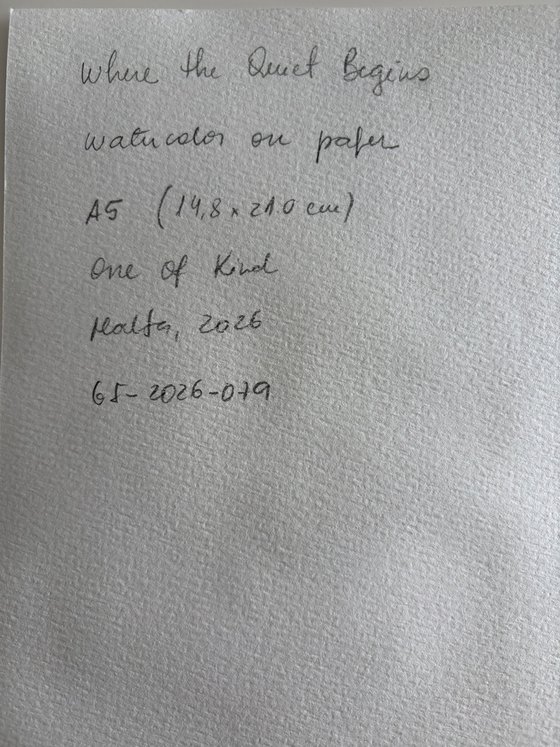 Where the Quiet Begins
watercolor on paper
A5 (14,8 x 21.0 cm)
One of Kind
Malta, 2026